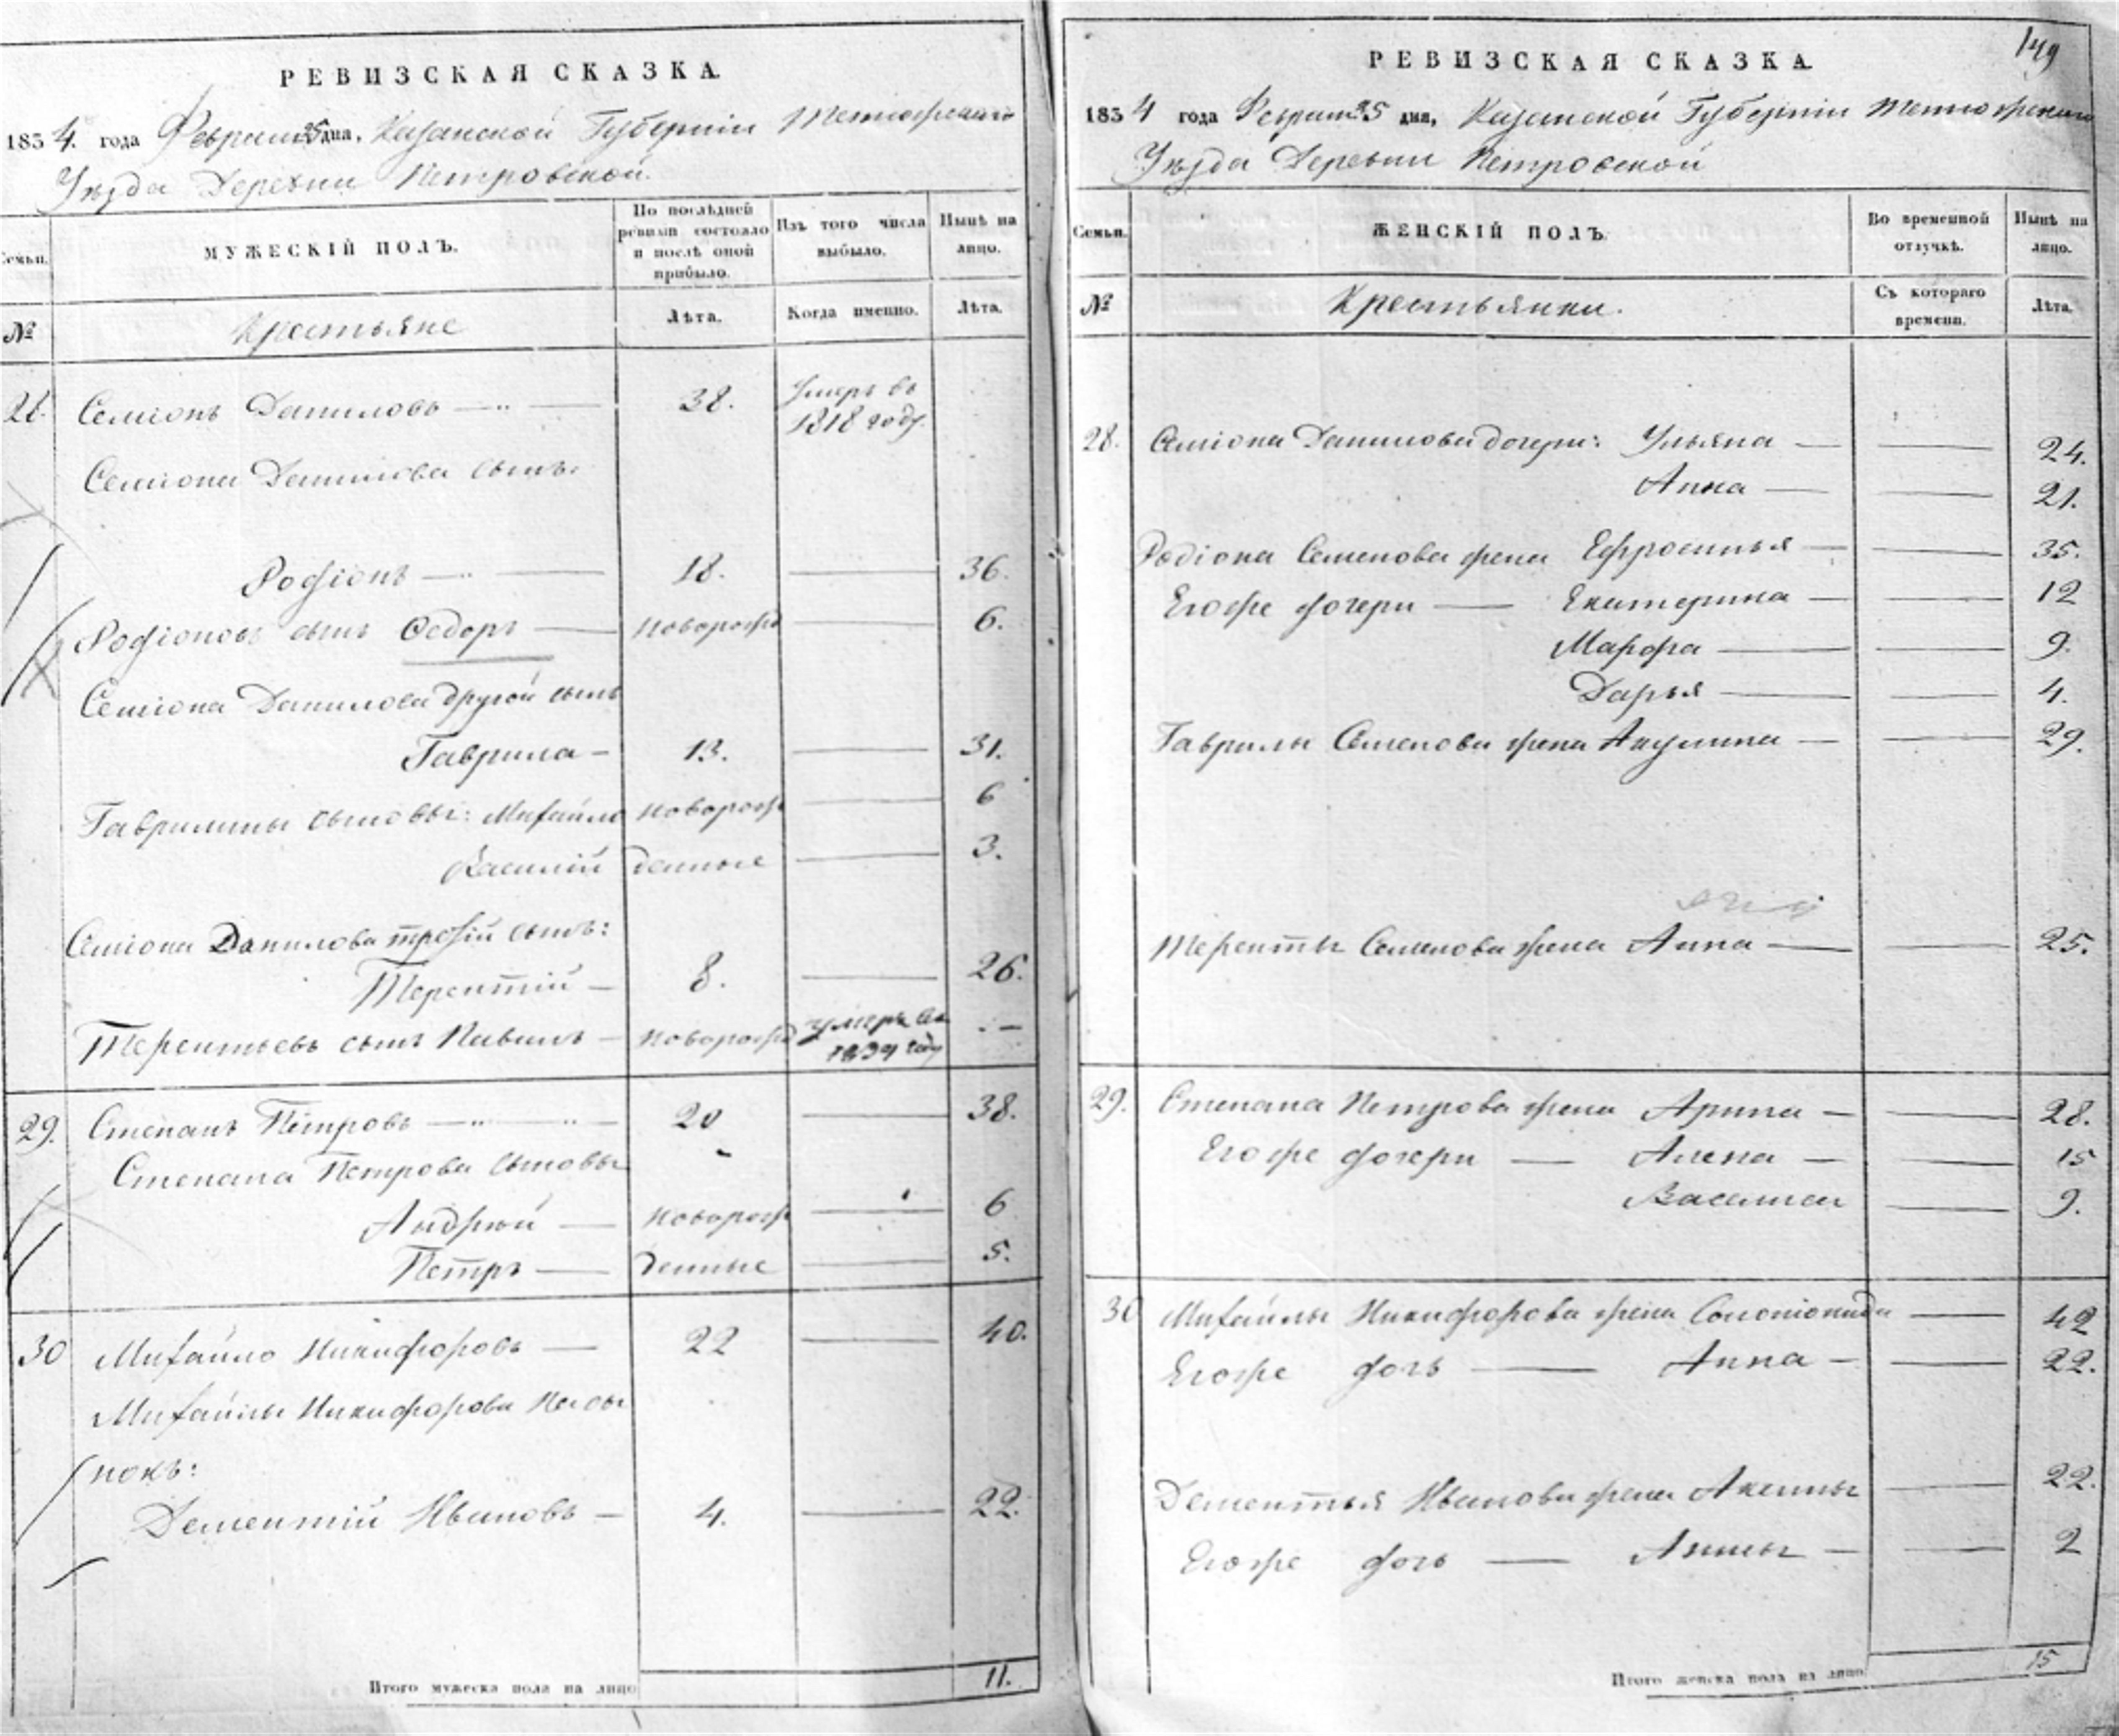 РЕВИЗСКАЯ СКАЗКА.
1834. года Февраля 25 дня, Казанской Губерніи
Уѣзда Деревни Петровской.
Семьи.
МУЖЕСКІЙ ПОЛЪ.
По послѣдней ревизіи состояло и послѣ оной прибыло.
Изъ того числа выбыло.
Нынѣ на лицо.
№
Крестьяне
Лѣта.
Когда именно.
Лѣта.
28. Семіонъ Даниловъ — 38. Умеръ въ 1818 году.
Семіона Данилова сынъ:
Родіонъ — 18. — 36.
Родіоновъ сынъ Ѳедоръ — новорожд — 6.
Семіона Данилова другой сынъ
Гаврила — 13. — 31.
Гаврилины сыновьи: Михайло новорож — 6
Василій денные — 3.
Семіона Данилова третій сынъ:
Терентій — 8. — 26.
Терентьевъ сынъ Павилъ — новорожд умеръ въ году —
29. Степанъ Петровъ — 20 — 38.
Степана Петрова сыновьи
Андрей — новорож — 6
Петръ — денные — 5.
30 Михайло Никифоровъ — 22 — 40.
Михайлы Никифорова Пасы
нокъ:
Дементій Ивановъ — 4. — 22.
Итого мужеска пола на лицо 11.
149
РЕВИЗСКАЯ СКАЗКА.
1834 года 25 дня, Казанской Губерніи
Уѣзда Деревни Петровской
Семьи.
ЖЕНСКІЙ ПОЛЪ.
Во временной отлучкѣ.
Нынѣ на лицо.
№
Крестьянки.
Съ котораго времени.
Лѣта.
28. Семіона Данилова дочери: Ульяна — — 24.
Анна — — 21.
Родіона Семенова жена Ефросинья — — 35.
Егоже дочери — Екатерина — — 12
Марфа — — 9.
Дарья — — 4.
Гаврилы Семенова жена Акулина — — 29.
Терентты Семенова жена Анна — — 25.
29. Степана Петрова жена Арина — — 28.
Егоже дочери — Алена — — 15
Василиса — 9.
30 Михайлы Никифорова жена Соломонида — 42
Егоже дочь — Анна — — 22.
Дементья Иванова жена — 22.
Егоже дочь — Анны — — 2
Итого женска пола на лицо 15